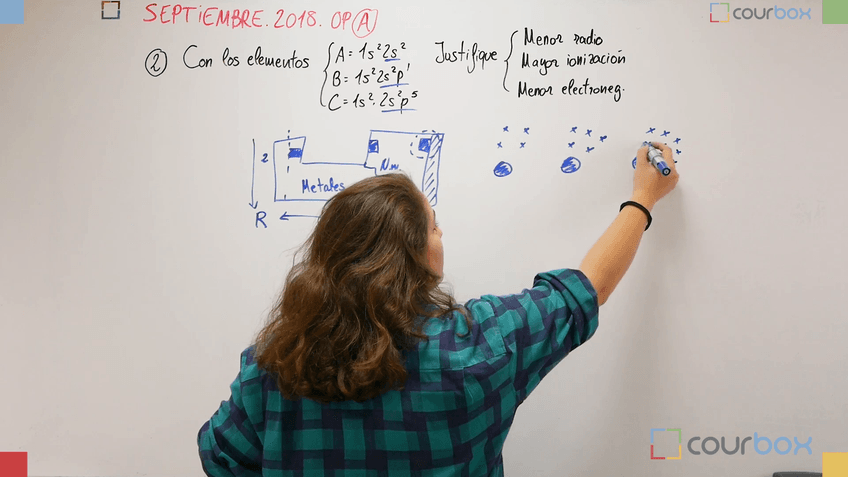 SEPTIEMBRE. 2018. OP A
courbox
2 Con los elementos
A = 1s² 2s²
B = 1s² 2s² p¹
C = 1s² · 2s² p⁵
Justifique
Menor radio
Mayor ionización
Menor electroneg.
2
Metales
R
courbox